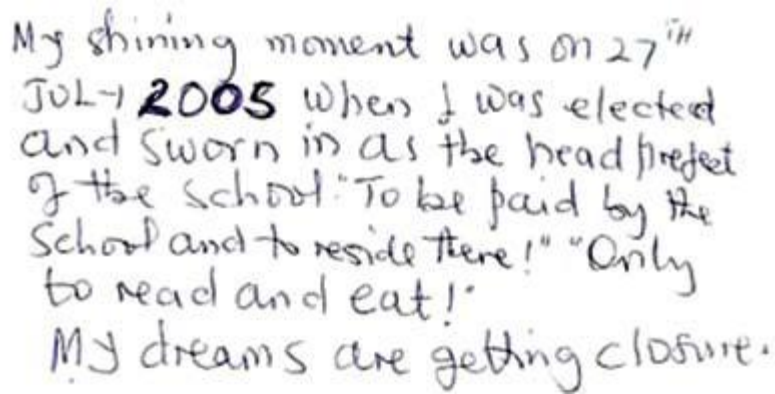 My shining moment was on 27TH
JULY 2005 when I was elected
and sworn in as the head prefect
of the school. "To be paid by the
school and to reside there!" "Only
to read and eat!"
My dreams are getting closure.